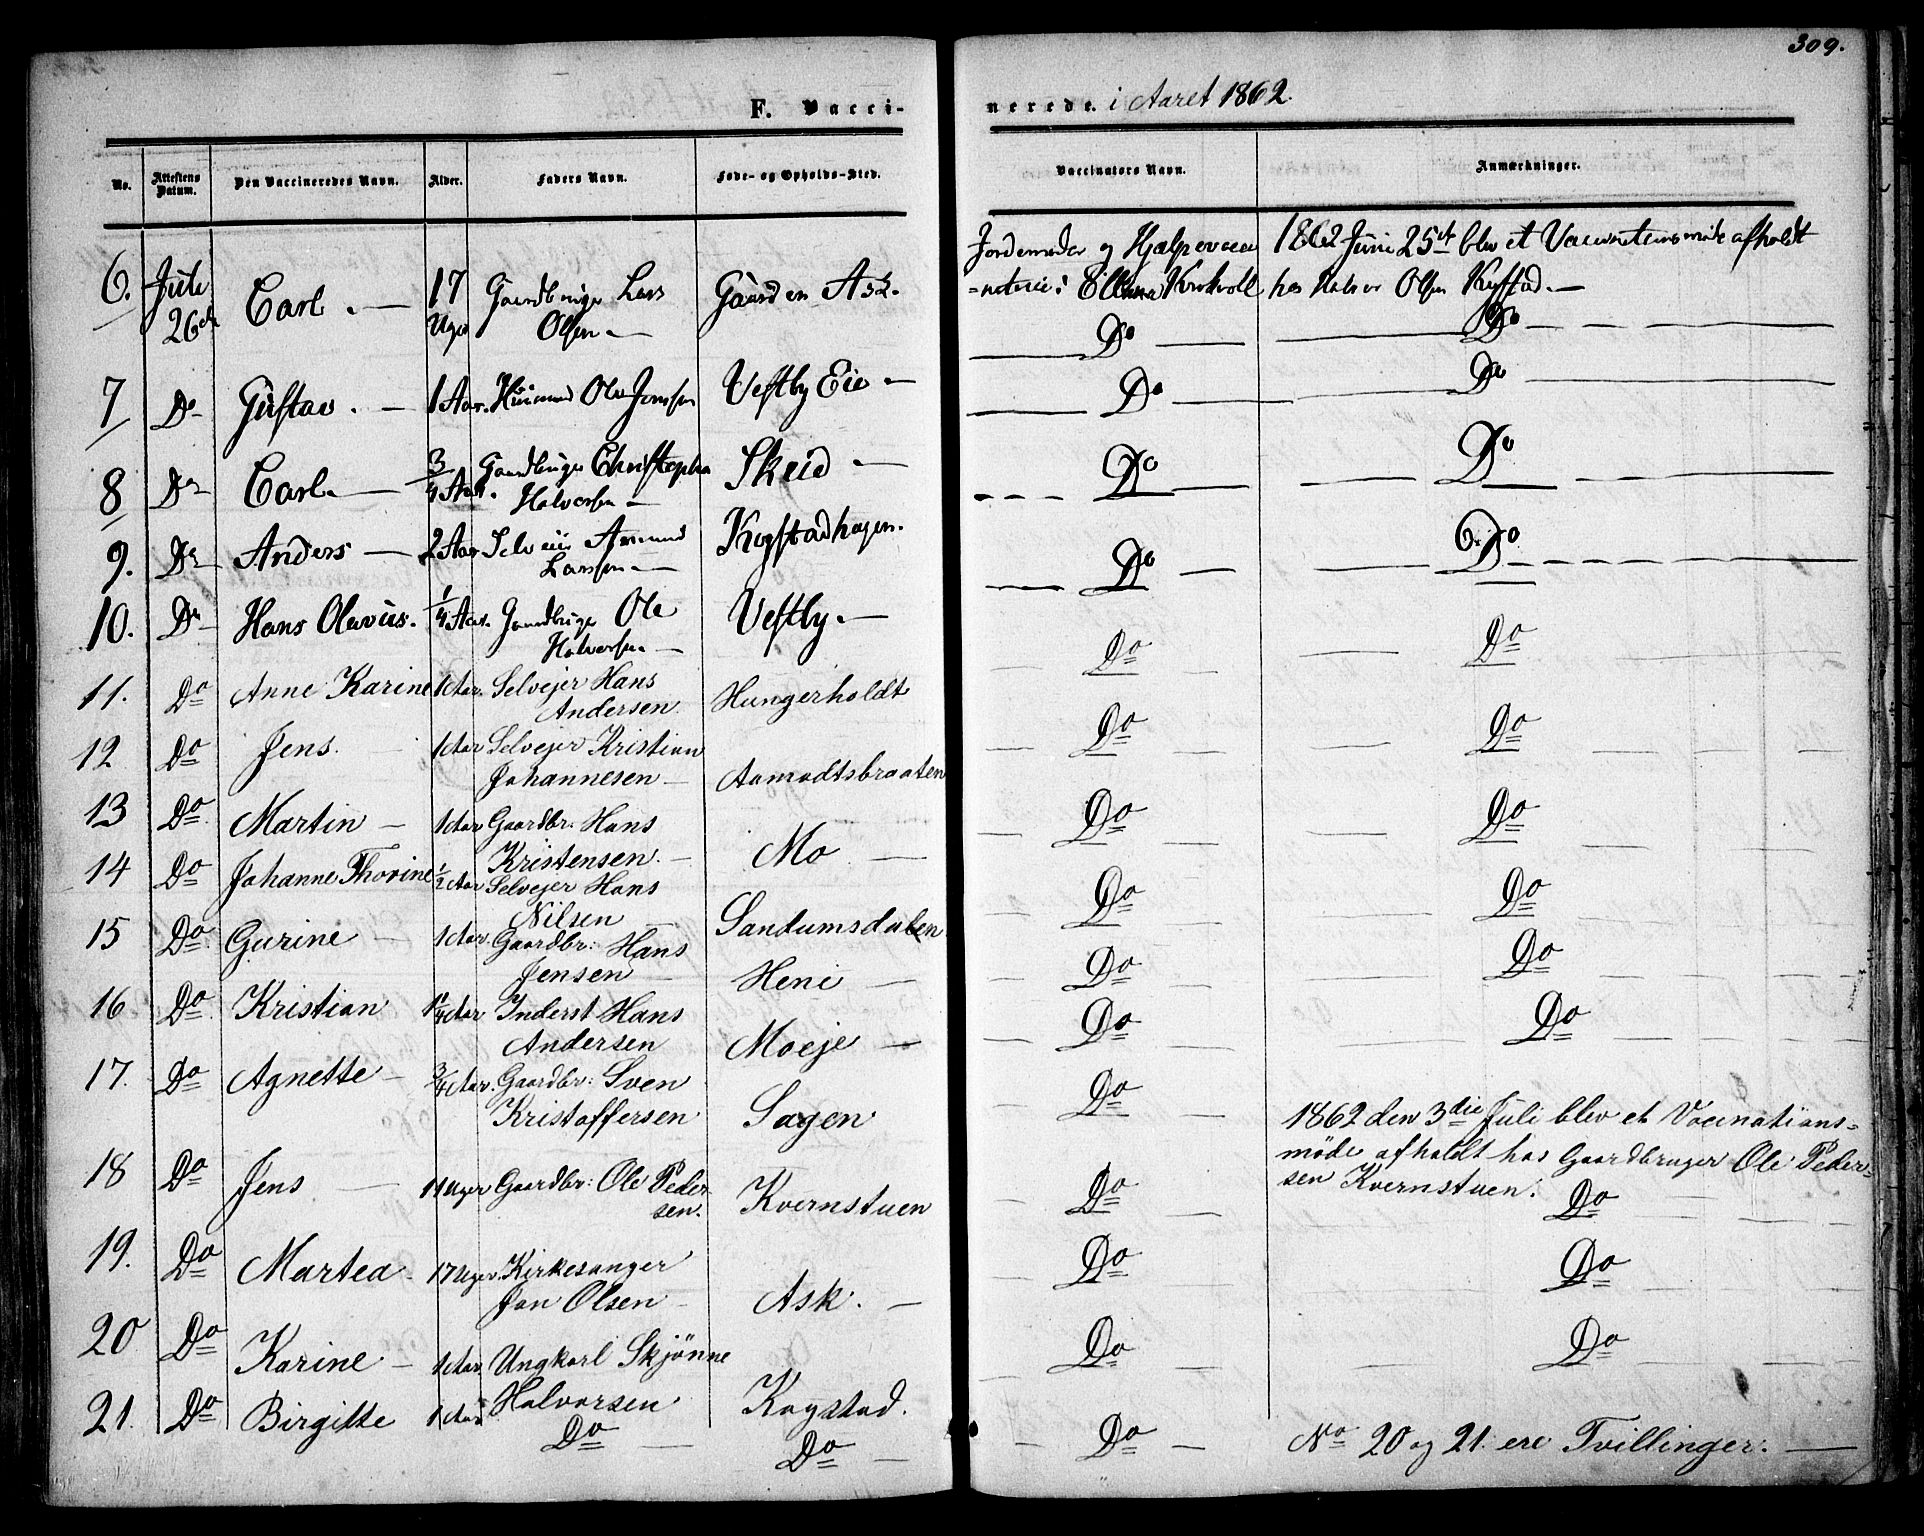 309.
F. Vaccinerede. i Aaret 1862.
No. Attestens Datum. Den Vaccineredes Navn. Alder. Faders Navn. Føde- og Opholds-Sted. Vaccinators Navn. Anmærkninger.
6. Juli 26de Carl. — 17 Uger Gaardbruger Lars Olsen — Gaarden Ask. Jordemoder og Hjælpevacci=natrice: Kirkvoll 1862 Juni 25de blev et Vaccinationsmøde afholdt hos Halvor Olsen Kygstad. —
Do — Do —
7 Do Gustav. — 1 Aar. Huusmand Ole Jonsen Vestby Eie — Do — Do —
8 Do Carl. — 3/4 Aar. Gaardbruger Christopher Halvorsen — Skeid — Do Do
9. Do Anders — 2 Aar Selveier Amund Larsen — Kogstadhagen. Do — Do —
10. Do Hans Olavus. 1/4 Aar. Gaardbruger Ole Halvorsen — Vestby. — Do Do
11. Do Anne Karine 1 Aar. Selvejer Hans Andersen. Hungerholdt Do Do
12 Do Jens. — 1 Aar Selvejer Kristian Johannesen — Aamodtsbraaten Do Do
13 Do Martin — 1 Aar Gaardbr. Hans Kristensen. — Mo — Do Do
14 Do Johanne Thorine 1/2 Aar Selvejer Hans Nilsen — Sandumsdalen Do Do
15 Do Gurine — 1 Aar. Gaardbr: Hans Jensen — Heni — Do Do
16 Do Kristian 1 1/4 Aar Inderst Hans Andersen Moeje — Do
17. Do Agnette — 3/4 Aar. Gaardbr: Sven Kristoffersen Sagen Do
1862 den 3die Juli blev et Vaccinations=
møde afholdt hos Gaardbruger Ole Peder=
sen Kvernstuen.
18 Do Jens — 11 Uger Gaardbr: Ole Peder-sen. Kvernstuen Do Do
19. Do Martea — 17 Uger Kirkesanger Jon Olsen — Ask. — Do Do
20 Do Karine — 1 Aar. Ungkarl Skjönne Halvorsen Kogstad. Do Do
21. Do Birgitte 1 Aar Do — Do — Do — No 20 og 21. ere Tvillinger. —